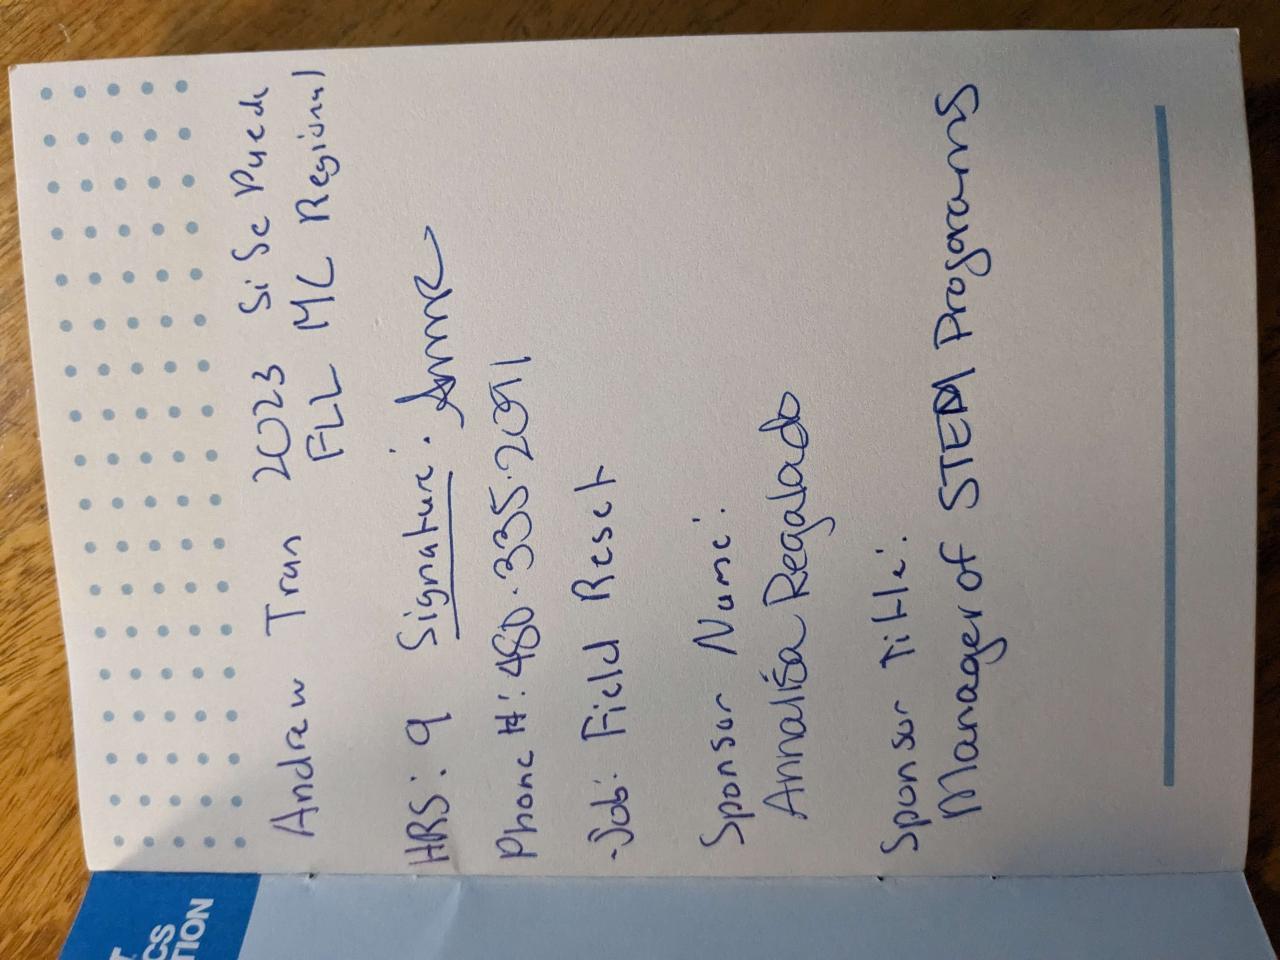 Andrew Tran 2023 Si Se Puede
FLL ML Regional
HRS: 9 Signature:
Phone #: 480.335.2091
Job: Field Reset
Sponsor Name:
Annalisa Regalado
Sponsor Title:
Manager of STEM Programs